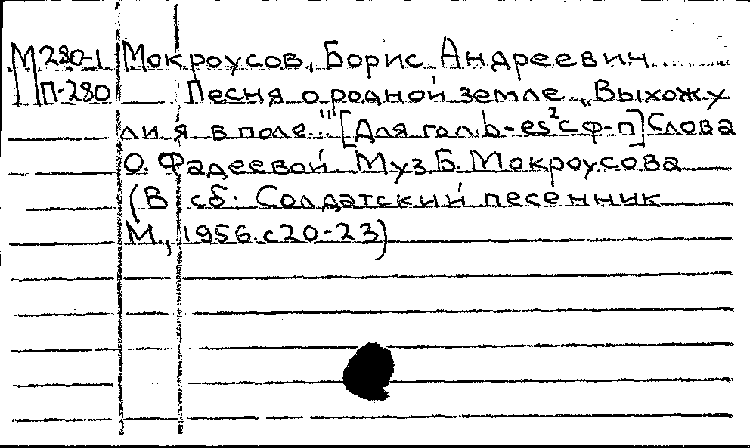 М280-1 Мокроусов, Борис Андреевич
П-280 Песня о родной земле „Выхожу
ли я в поле..." [Для гол. b-es² с ф-п] Слова
О. Фадеевой Муз Б. Мокроусова
(В сб: Солдатский песенник
М., 1956. с 20-23)